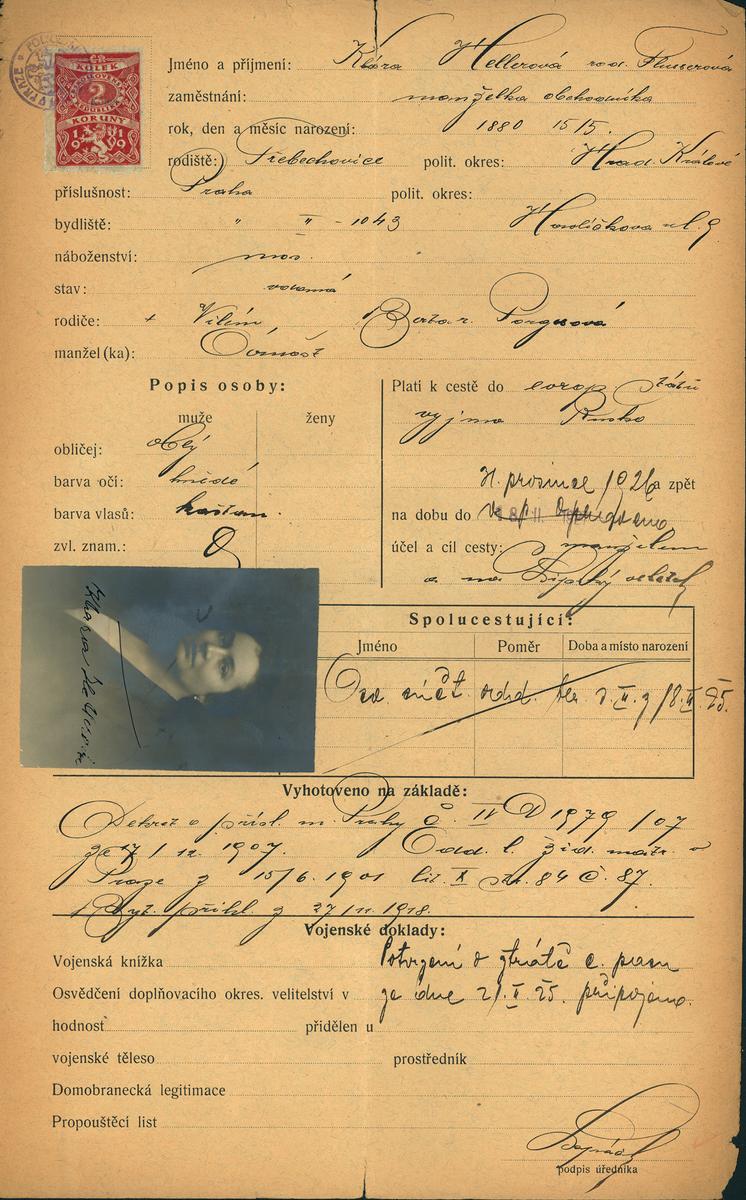 POLICEJNÍ
V PRAZE
KOLEK
2
KORUNY
1919
Jméno a příjmení: Klára Hellerová rod. Flusserová
zaměstnání: manželka obchodníka
rok, den a měsíc narození: 1880 15/5.
rodiště: Třebechovice polit. okres: Hrad. Králové
příslušnost: Praha polit. okres:
bydliště: " II - 1043 Havlíčkova ul. 9
náboženství: mos.
stav: vdaná
rodiče: + Vilém Berta r.
manžel(ka): Arnošt
Popis osoby:
muže ženy
obličej: obly
barva očí: hnědé
barva vlasů: kaštan.
zvl. znam.:
Platí k cestě do evrop. států
vyjma Rusko
31. prosince 1926 a zpět
na dobu do
účel a cíl cesty: s manželem
a na Lipský veletrh
Spolucestující:
Jméno Poměr Doba a místo narození
Vyhotoveno na základě:
Dekret o přísl. m. Prahy č. IV D 1979/07
ze 17/12. 1907. Odd. l. žid. matr. v
Praze z 15/6. 1901 lit. X str. 84 č. 87.
Byt. přihl. z 27/11. 1918.
Vojenské doklady:
Vojenská knížka Potvrzení o ztrátě c. pasu
Osvědčení doplňovacího okres. velitelství v ze dne 21.II.25. připojeno.
hodnosť přidělen u
vojenské těleso prostředník
Domobranecká legitimace
Propouštěcí list
podpis úředníka